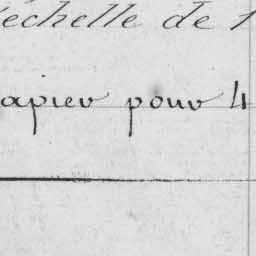 échelle de 1
apier pour 4